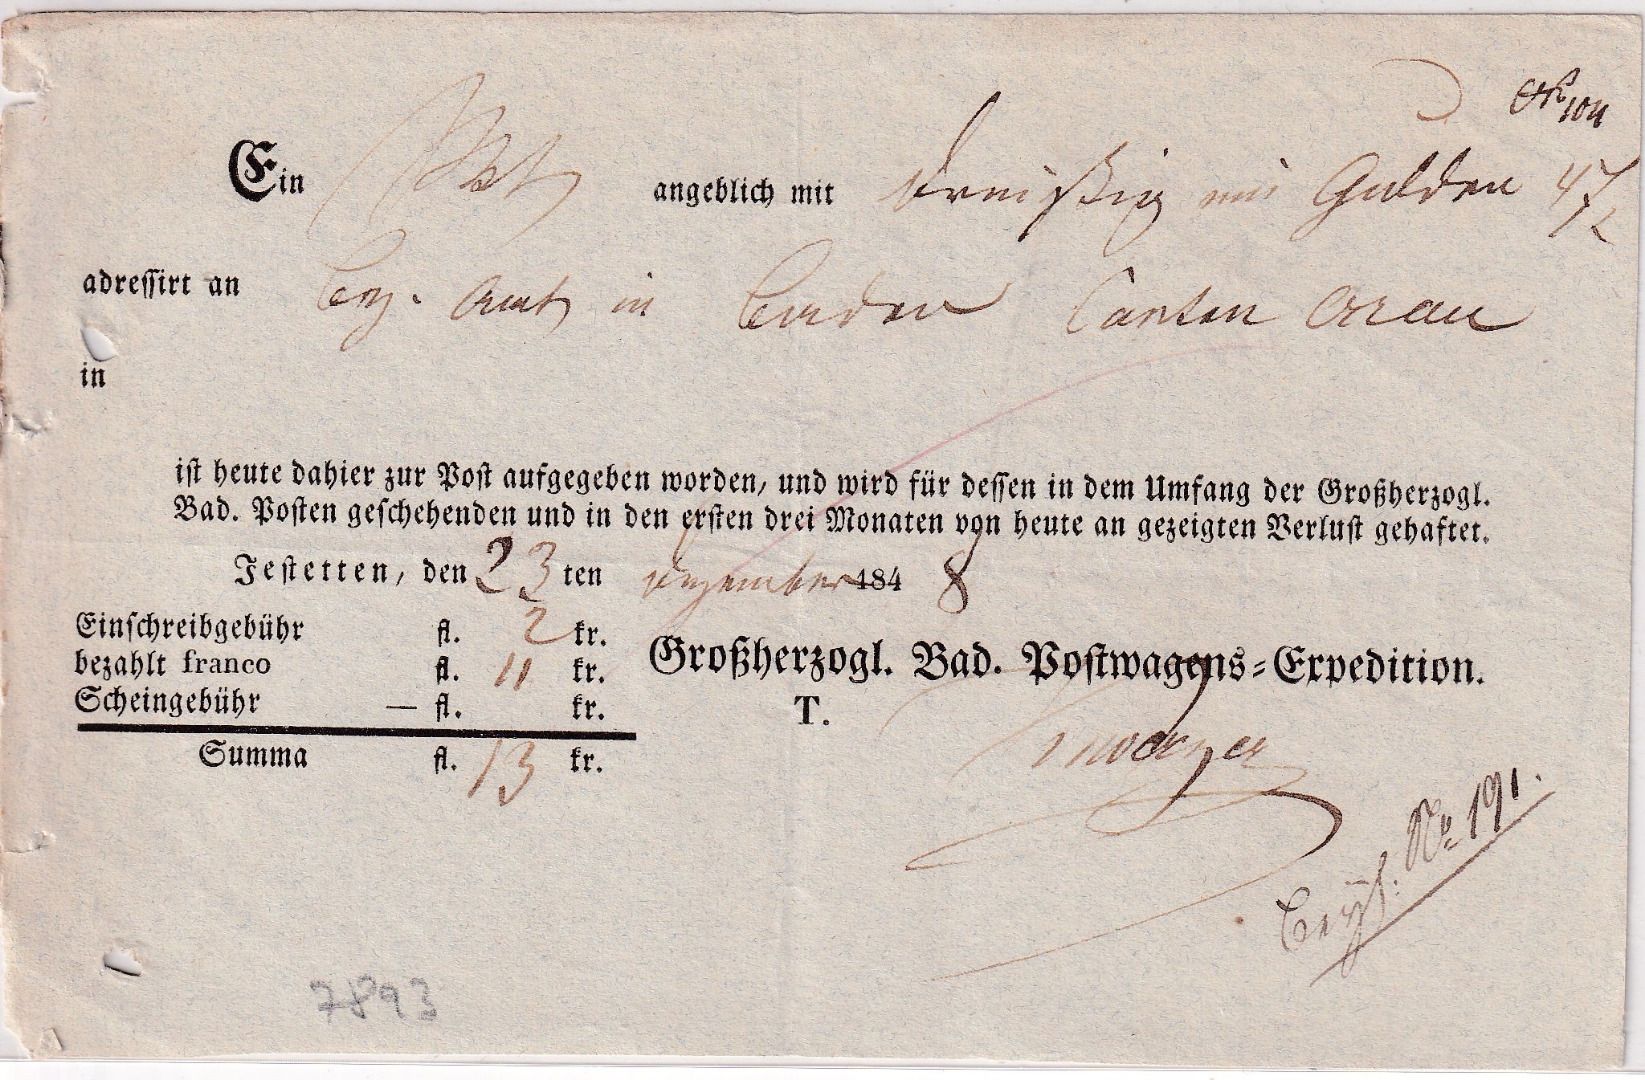 104
Ein angeblich mit dreißig Gulden 47
adressirt an Bez. Amt in Baden Canton Arau
in
ist heute dahier zur Post aufgegeben worden, und wird für dessen in dem Umfang der Großherzogl.
Bad. Posten geschehenden und in den ersten drei Monaten von heute an gezeigten Verlust gehaftet.
Jestetten, den 23 ten Dezember 184 8
Einschreibgebühr fl. 2 kr.
bezahlt franco fl. 11 kr.
Scheingebühr — fl. kr.
Summa fl. 13 kr.
Großherzogl. Bad. Postwagens=Expedition.
T.
No 191.
7893